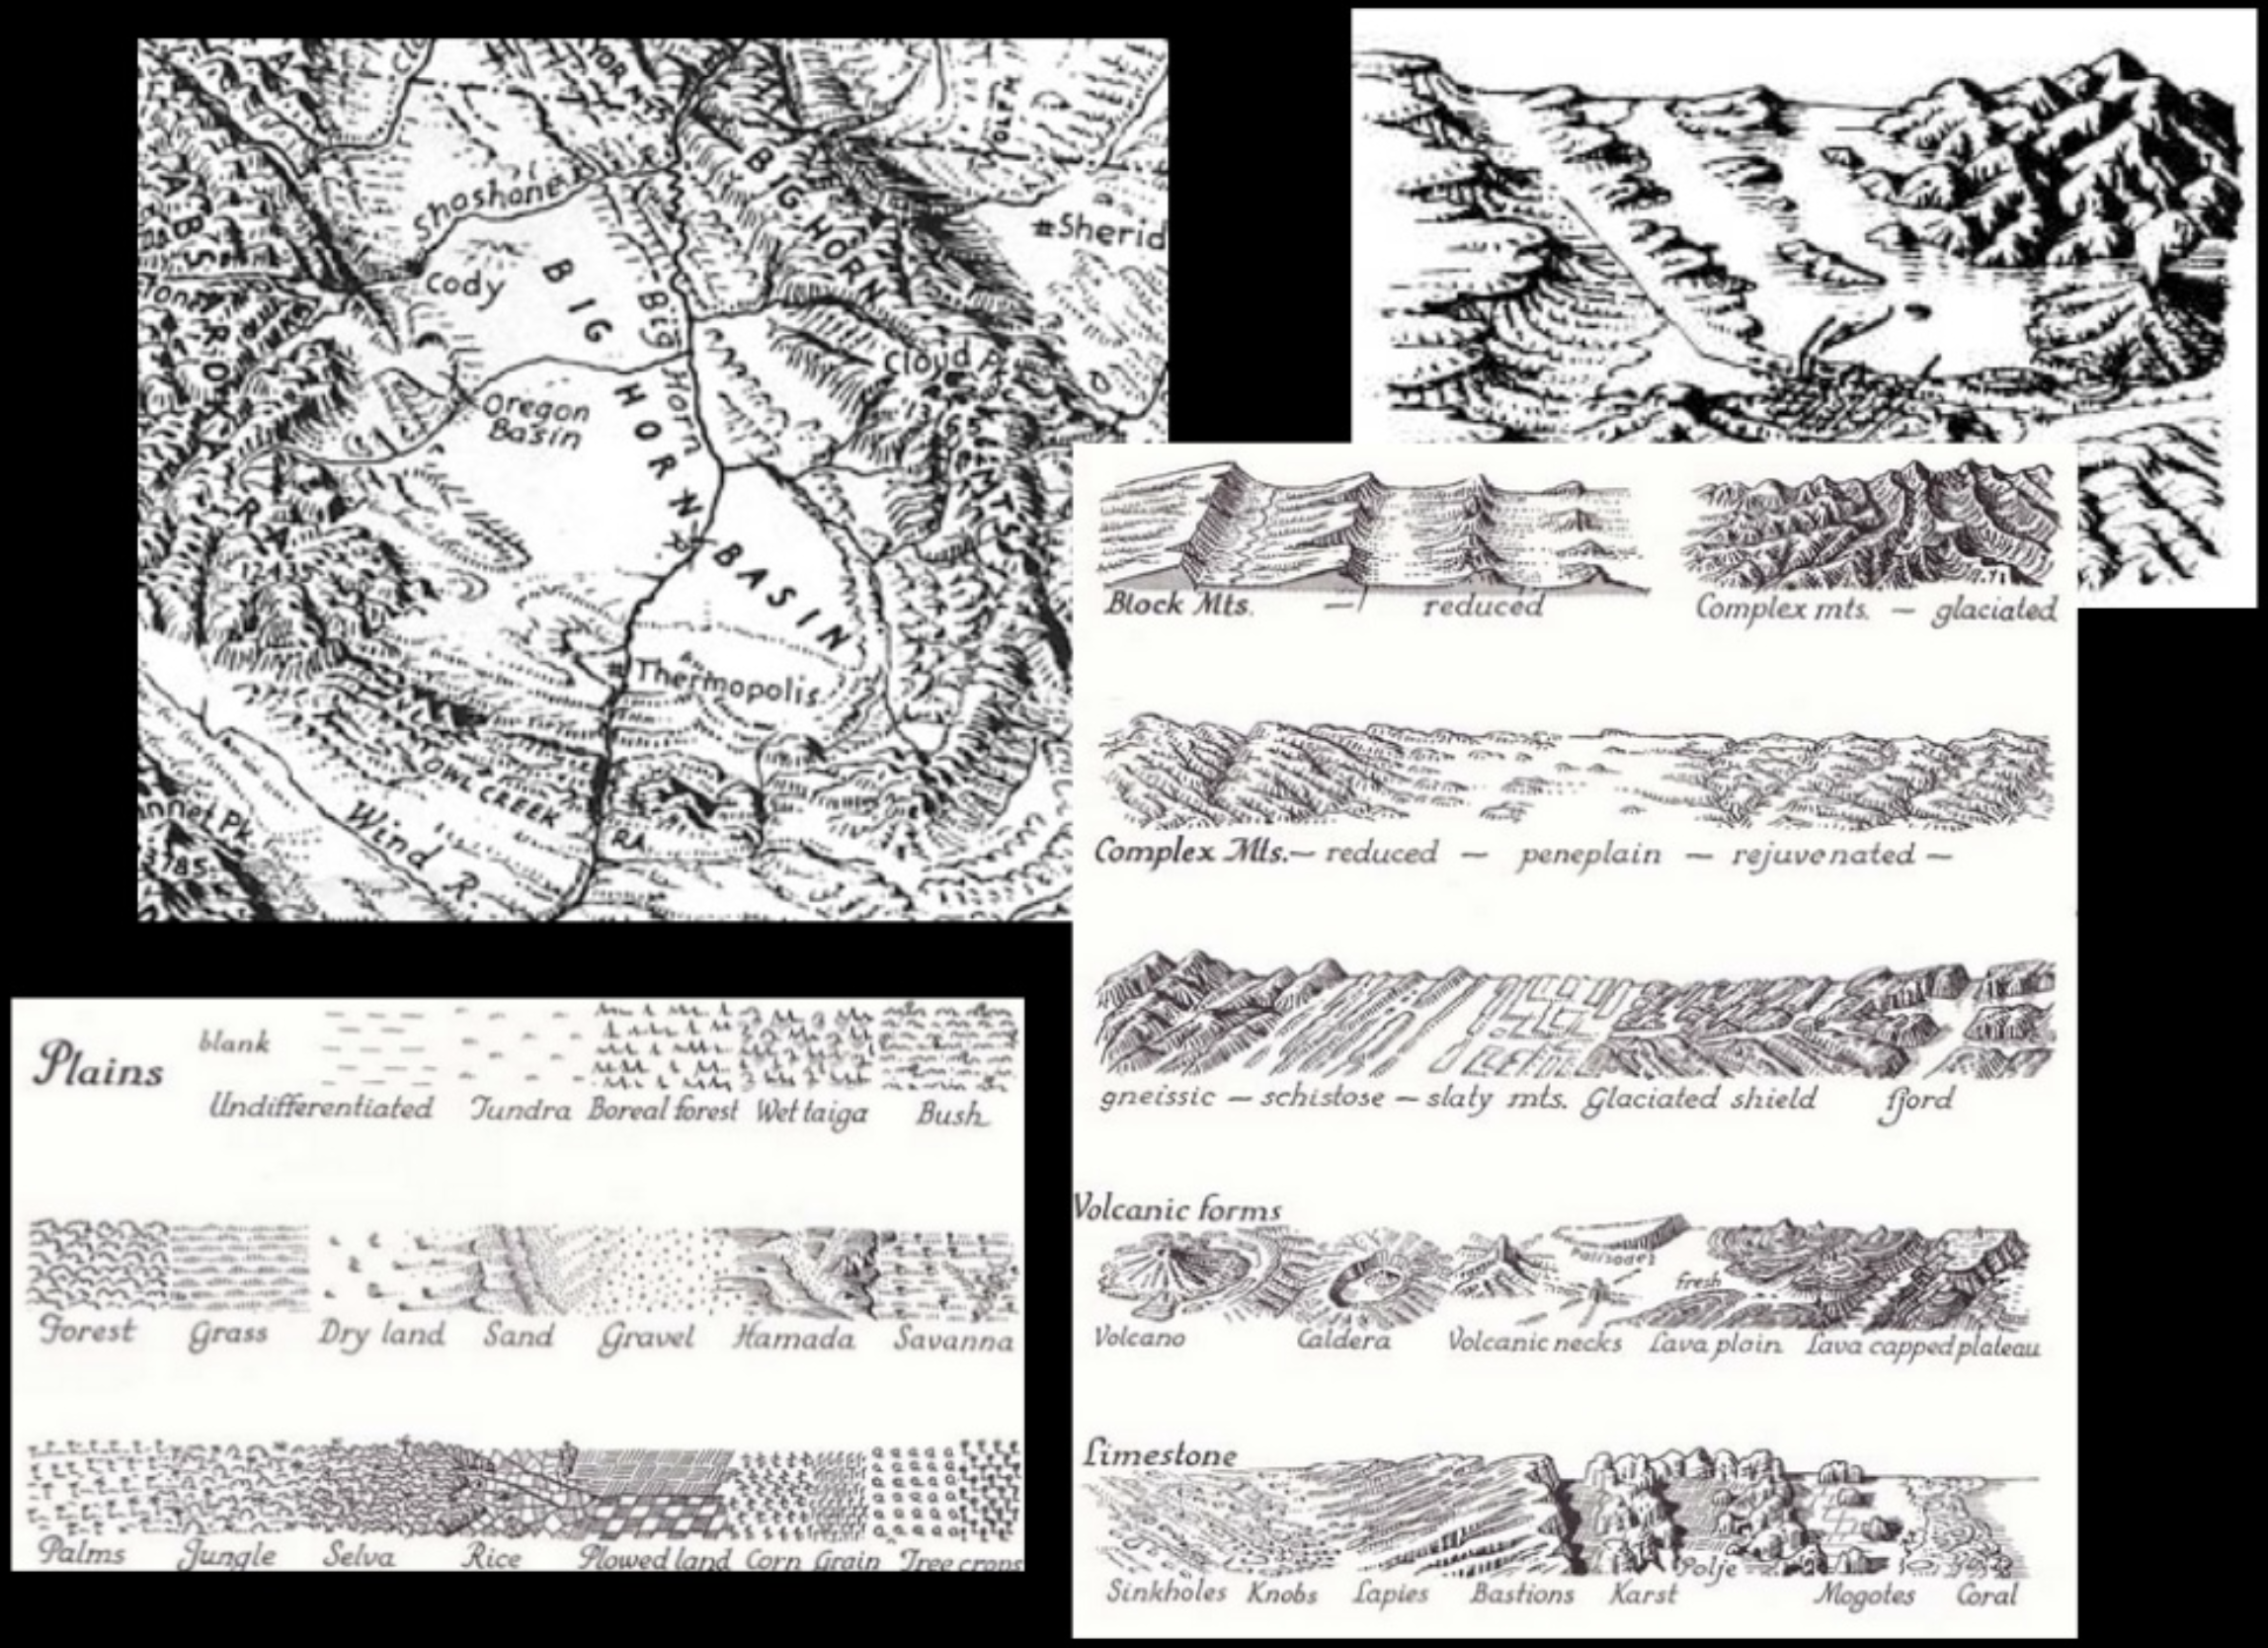 Shoshone R
BIG HORN
#Sherid
Cody
BIG HORN BASIN
Big Horn
Cloud P.
Oregon
Basin
MTS
Thermopolis
OWL CREEK
RA
Wind R.
nnet Pk.
3785
Block Mts. — reduced
Complex mts. — glaciated
Complex Mts.— reduced — peneplain — rejuvenated —
gneissic — schistose — slaty mts. Glaciated shield fjord
Volcanic forms
Palisades
fresh
Volcano Caldera Volcanic necks Lava plain Lava capped plateau
Limestone
Polje
Sinkholes Knobs Lapies Bastions Karst Mogotes Coral
Plains
blank
Undifferentiated Tundra Boreal forest Wet taiga Bush
Forest Grass Dry land Sand Gravel Hamada Savanna
Palms Jungle Selva Rice Plowed land Corn Grain Tree crops